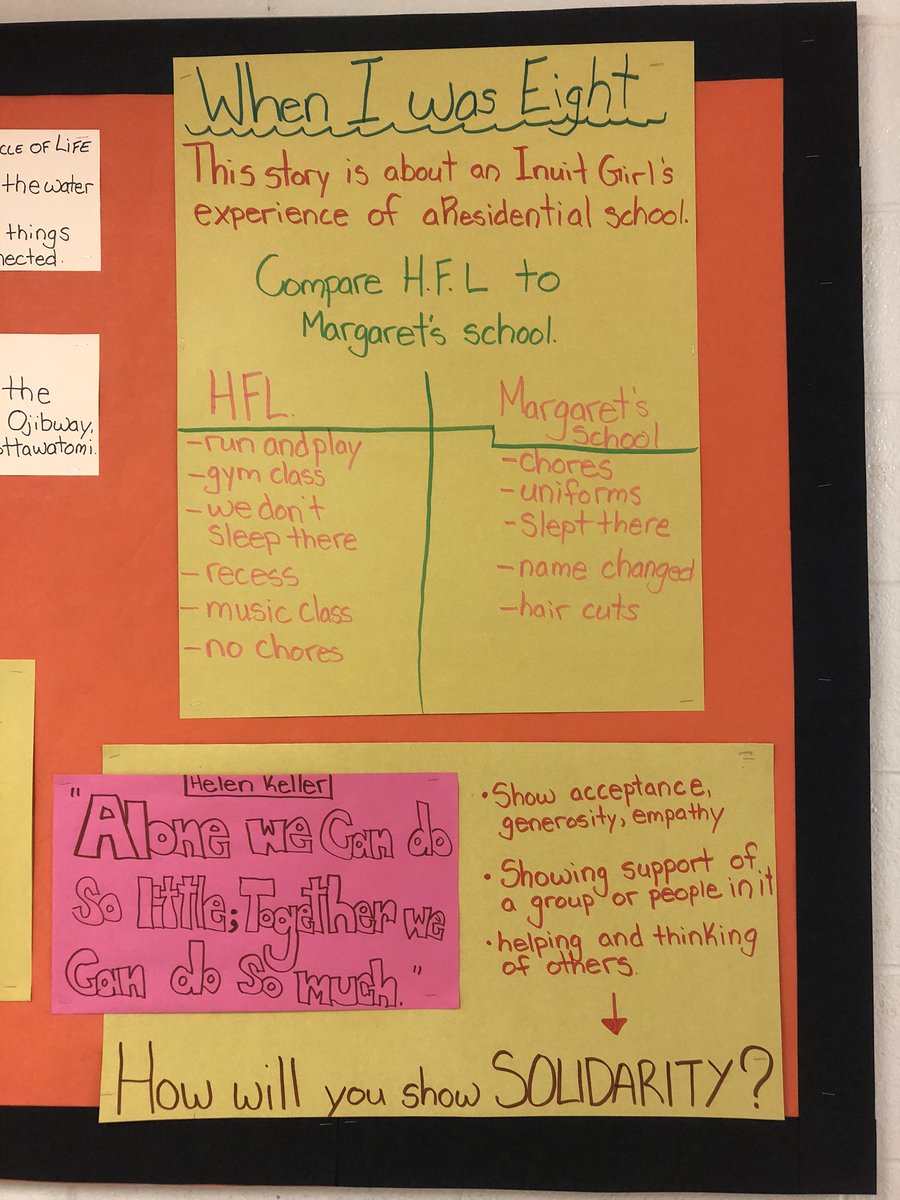 CLE OF LIFE
the water
things
nected.
the
Ojibway,
ottawatomi.
When I was Eight
This story is about an Inuit Girl's
experience of a Residential school.
Compare H.F.L to
Margaret's school.
HFL.
-run and play
-gym class
-we don't
sleep there
-recess
-music class
-no chores
Margaret's
school
-chores
-uniforms
-Slept there
-name changed
-hair cuts
Helen Keller
"Alone we Can do
So little; Together we
Can do So much."
•Show acceptance,
generosity, empathy
•Showing support of
a group or people in it
•helping and thinking
of others.
How will you show SOLIDARITY?